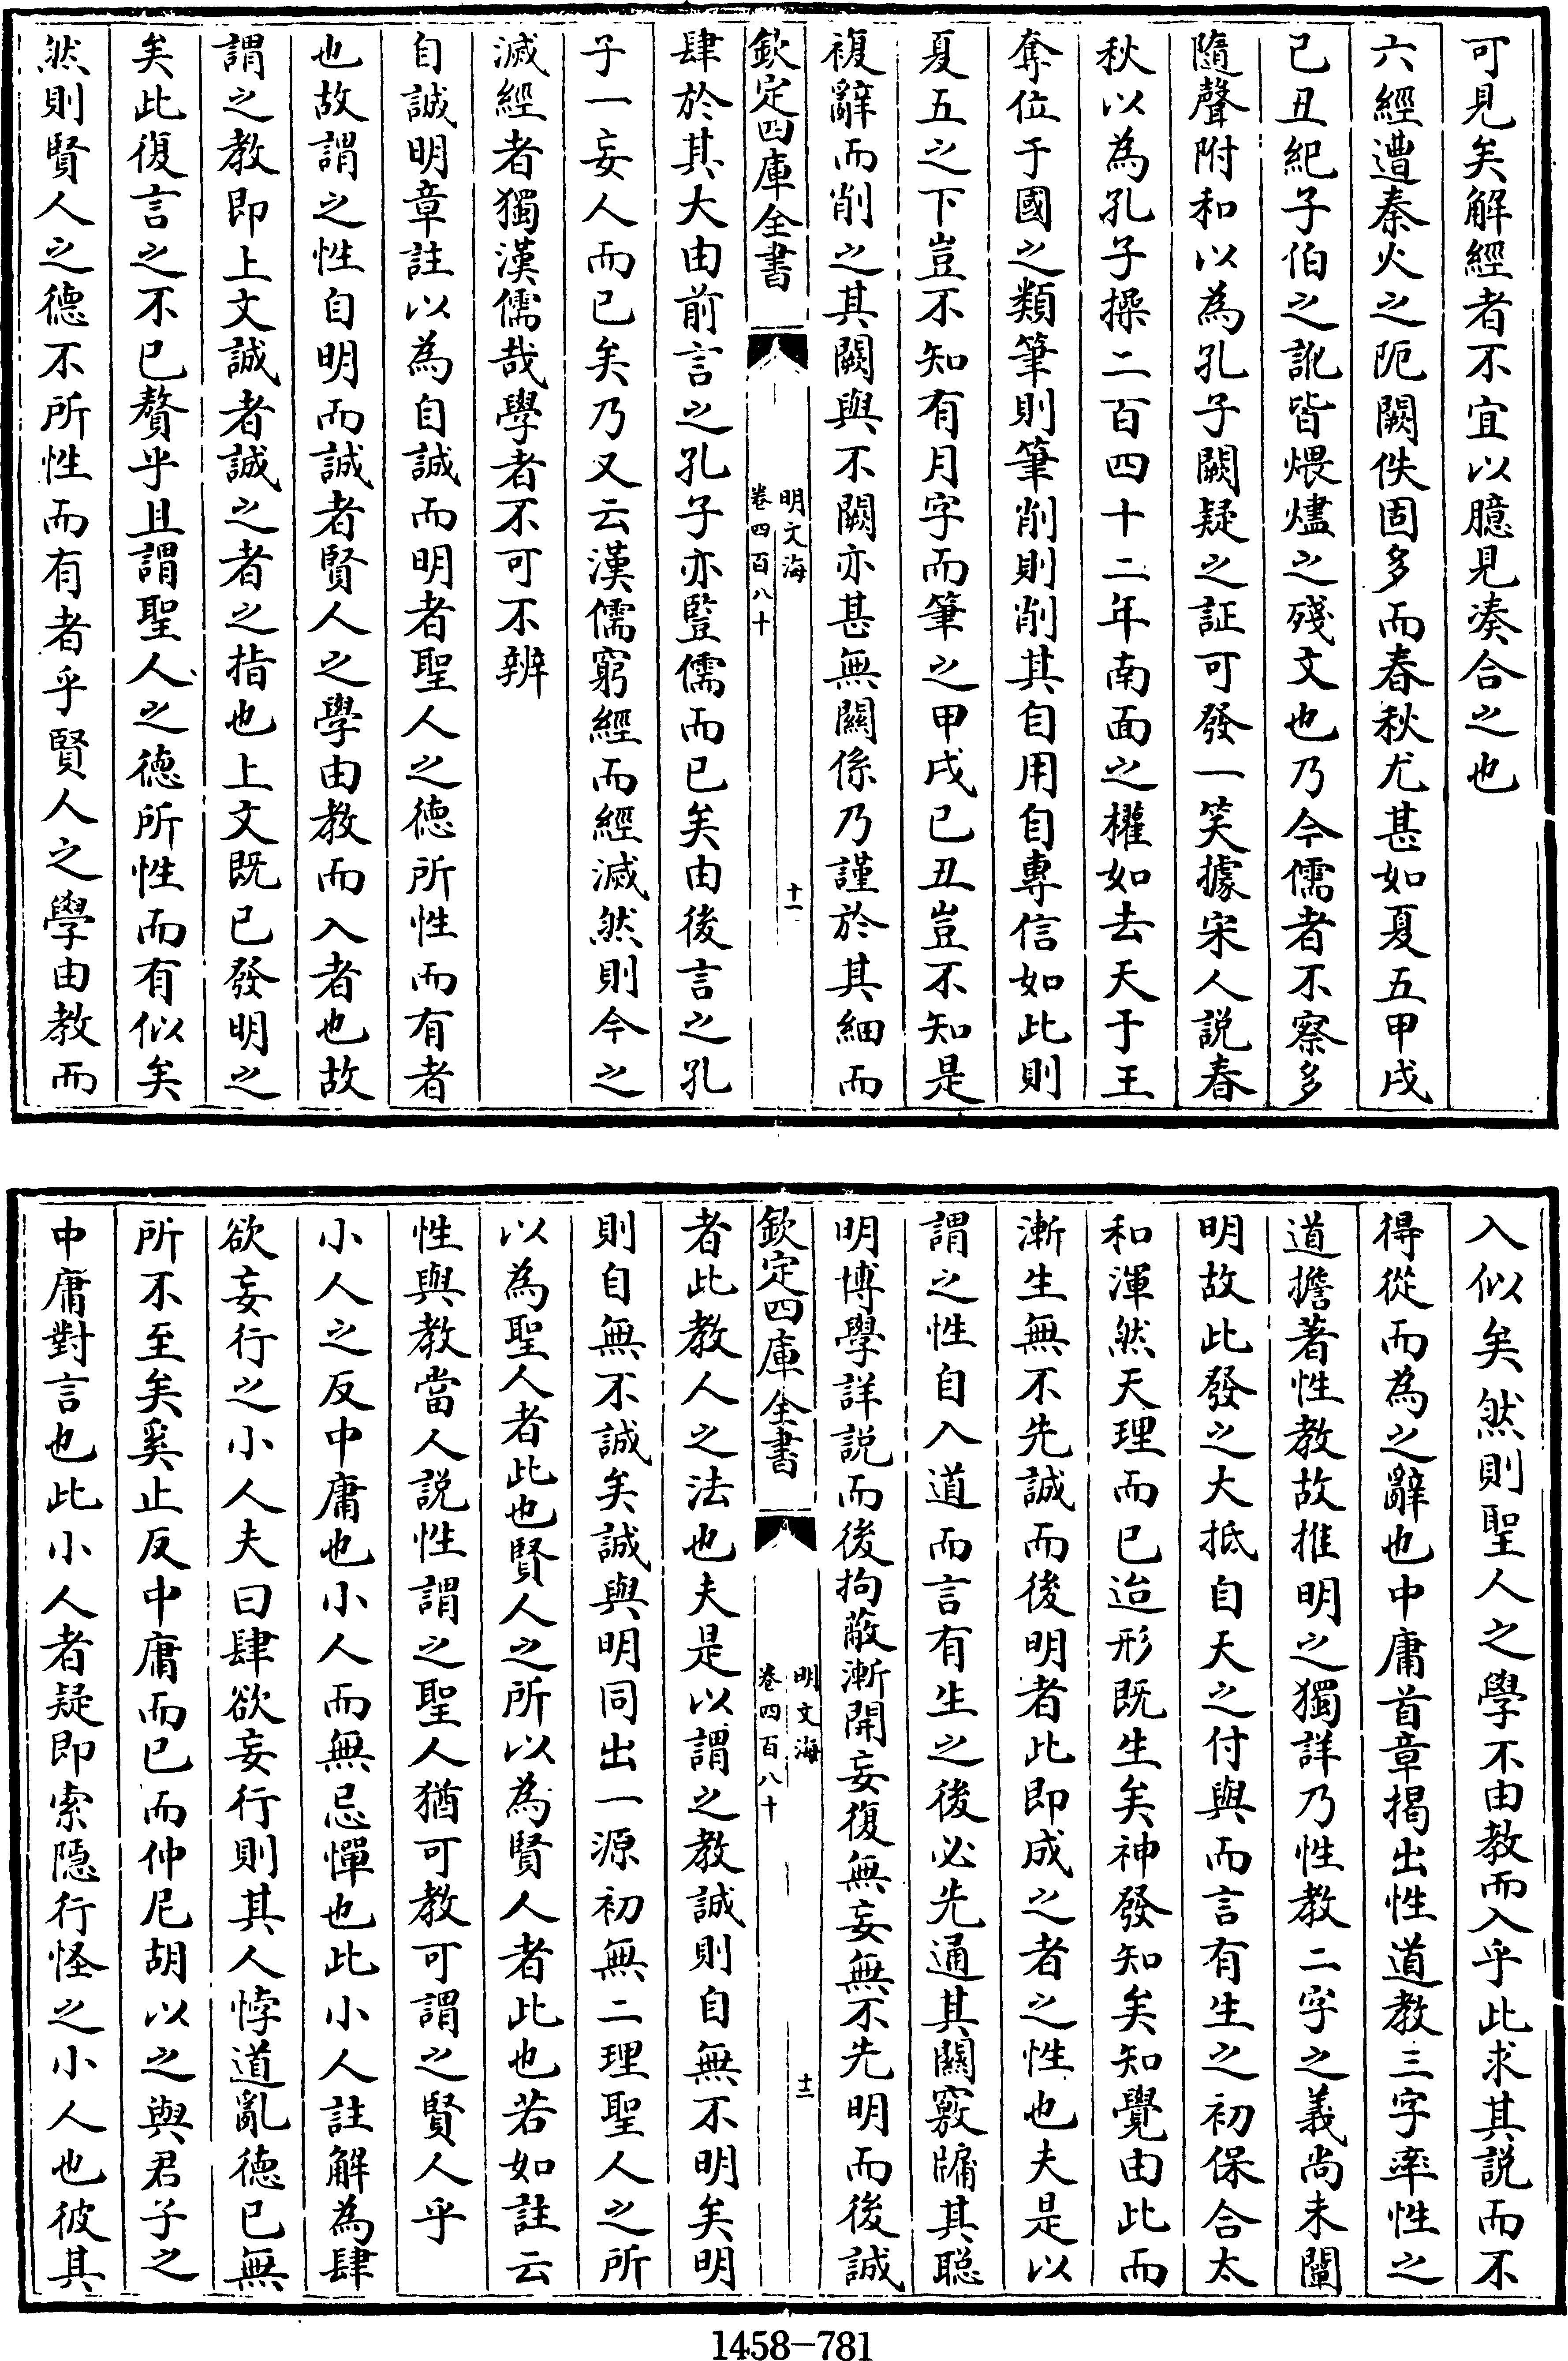 可見矣解經者不宜以臆見湊合之也
六經遭秦火之阨闕佚固多而春秋尤甚如夏五甲戌
己丑紀子伯之訛皆煨燼之殘文也乃今儒者不察多
隨聲附和以為孔子闕疑之証可發一笑據宋人説春
秋以為孔子操二百四十二年南面之權如去天于王
奪位于國之類筆則筆削則削其自用自專信如此則
夏五之下豈不知有月字而筆之甲戌己丑豈不知是
複辭而削之其闕與不闕亦甚無關係乃謹於其細而
欽定四庫全書
明文海
卷四百八十
十一
肆於其大由前言之孔子亦豎儒而已矣由後言之孔
子一妄人而已矣乃又云漢儒窮經而經滅然則今之
滅經者獨漢儒哉學者不可不辨
自誠明章註以為自誠而明者聖人之德所性而有者
也故謂之性自明而誠者賢人之學由教而入者也故
謂之教即上文誠者誠之者之指也上文既已發明之
矣此復言之不已贅乎且謂聖人之德所性而有似矣
然則賢人之德不所性而有者乎賢人之學由教而
入似矣然則聖人之學不由教而入乎此求其説而不
得從而為之辭也中庸首章揭出性道教三字率性之
道擔著性教故推明之獨詳乃性教二字之義尚未闡
明故此發之大抵自天之付與而言有生之初保合太
和渾然天理而已迨形既生矣神發知矣知覺由此而
漸生無不先誠而後明者此即成之者之性也夫是以
謂之性自入道而言有生之後必先通其關竅牖其聰
明博學詳説而後拘蔽漸開妄復無妄無不先明而後誠
欽定四庫全書
明文海
卷四百八十
十二
者此教人之法也夫是以謂之教誠則自無不明矣明
則自無不誠矣誠與明同出一源初無二理聖人之所
以為聖人者此也賢人之所以為賢人者此也若如註云
性與教當人説性謂之聖人猶可教可謂之賢人乎
小人之反中庸也小人而無忌憚也此小人註解為肆
欲妄行之小人夫曰肆欲妄行則其人悖道亂德已無
所不至矣奚止反中庸而已而仲尼胡以之與君子之
中庸對言也此小人者疑即索隱行怪之小人也彼其
1458-781